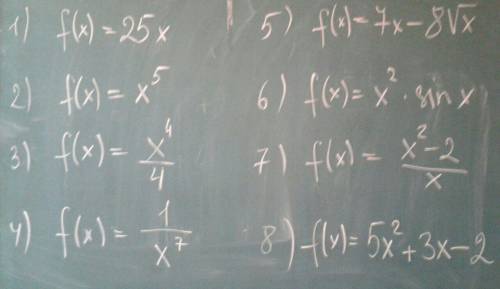 1) f(x) = 25x
2) f(x) = x⁵
3) f(x) = x⁴/4
4) f(x) = 1/x⁷
5) f(x) = 7x - 8√x
6) f(x) = x² · sin x
7) f(x) = x² - 2/x
8) f(x) = 5x² + 3x - 2